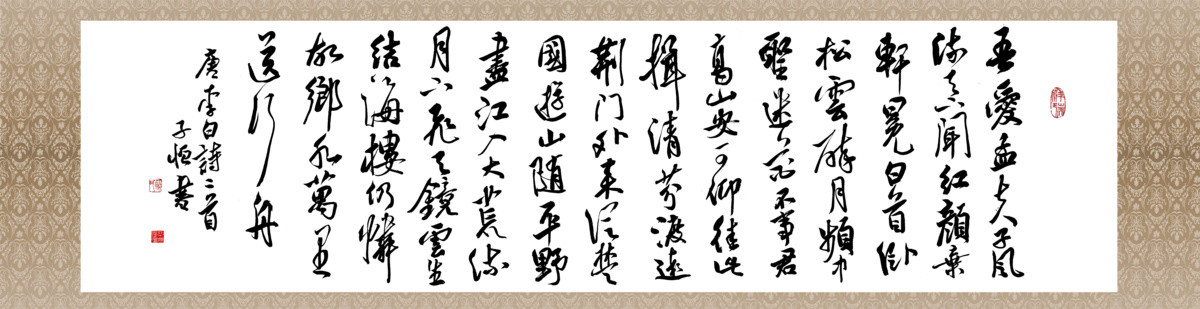 吾愛孟夫子風
流天下聞紅顏棄
軒冕白首卧
松雲醉月頻中
聖迷花不事君
高山安可仰徒此
揖清芬渡遠
荊门外来從楚
國遊山随平野
盡江入大荒流
月下飛天鏡雲生
結海樓仍憐
故鄉水萬里
送行舟
唐李白詩二首
子恒書